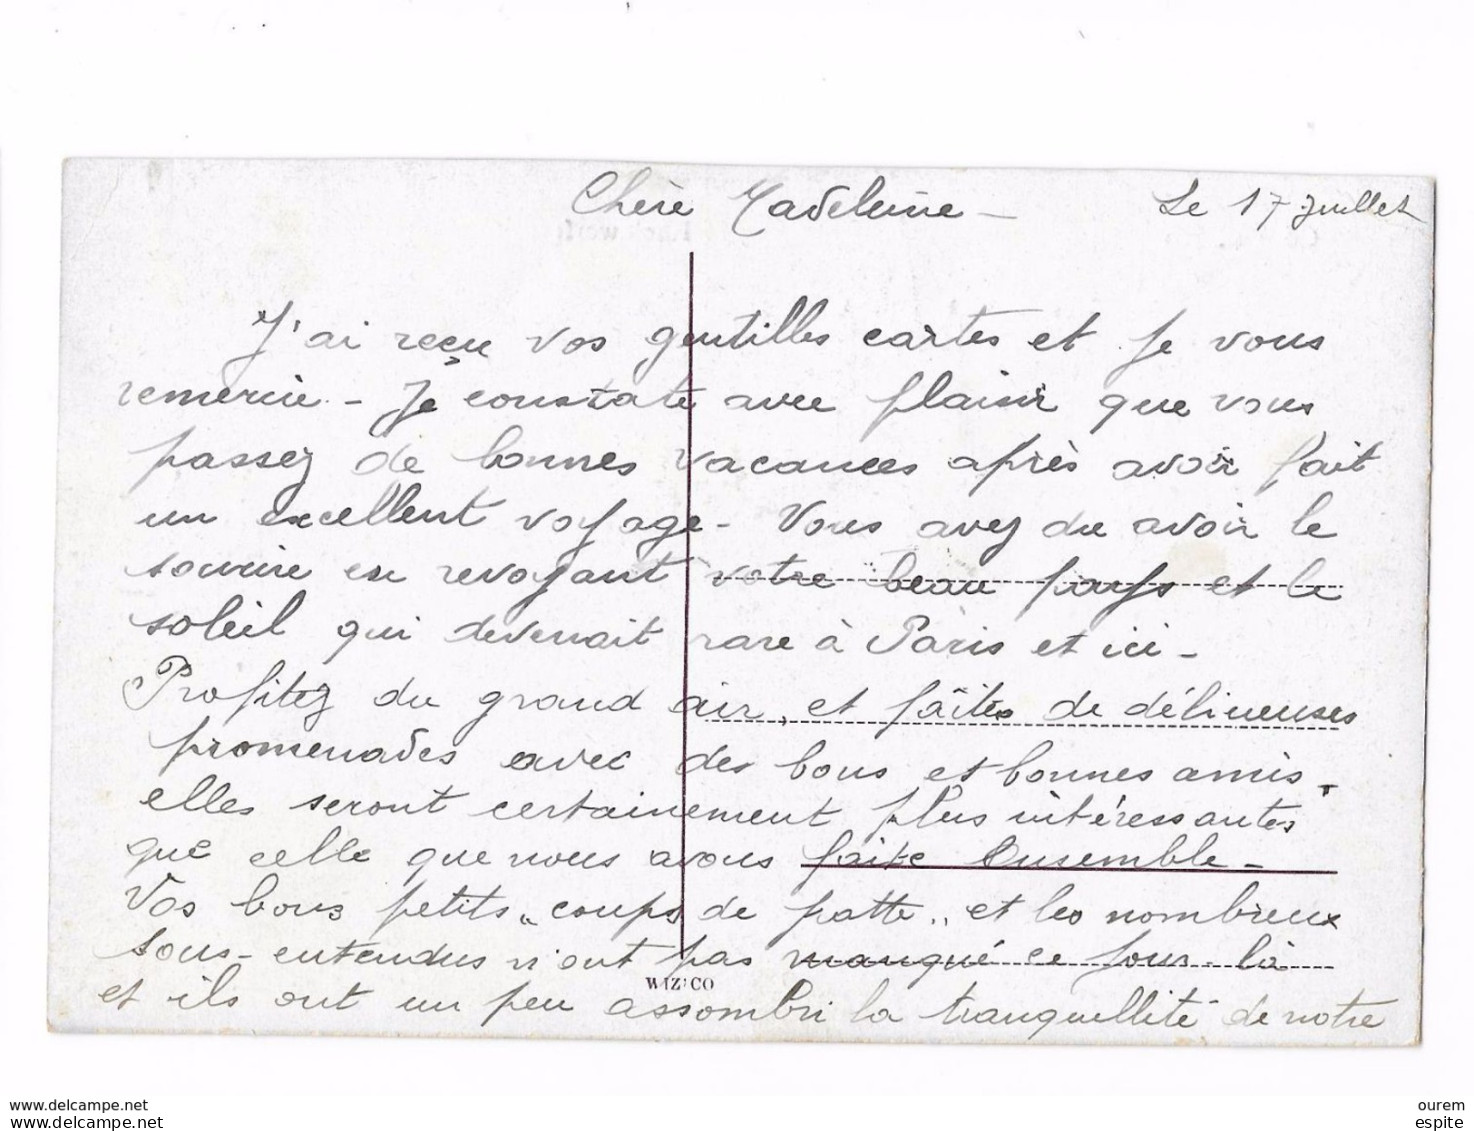 Chère Madeleine - Le 17 Juillet
J'ai reçu vos gentilles cartes et je vous
remercie - Je constate avec plaisir que vous
passez de bonnes vacances après avoir fait
un excellent voyage - Vous avez du avoir le
sourire en revoyant votre beau pays et le
soleil qui devenait rare à Paris et ici -
Profitez du grand air, et faîtes de délicieuses
promenades avec des bons et bonnes amis,
elles seront certainement plus intéressantes
que celle que nous avons faite ensemble -
Vos bons petits "coups de patte" et les nombreux
sous-entendus n'ont pas manqué ce jour-là
WIZ: CO
et ils ont un peu assombri la tranquillité de notre
www.delcampe.net
www.delcampe.net
ourem
espite